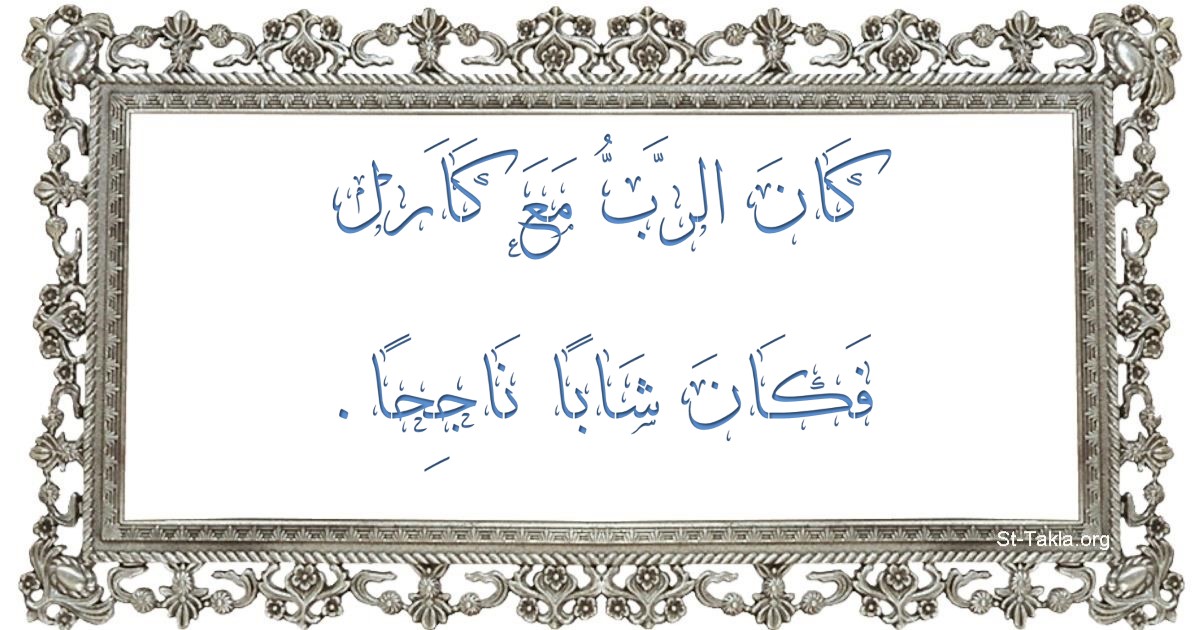 كَانَ الرَّبُّ مَعَ كَارَل
فَكَانَ شَابًا نَاجِحًا .
St-Takla.org